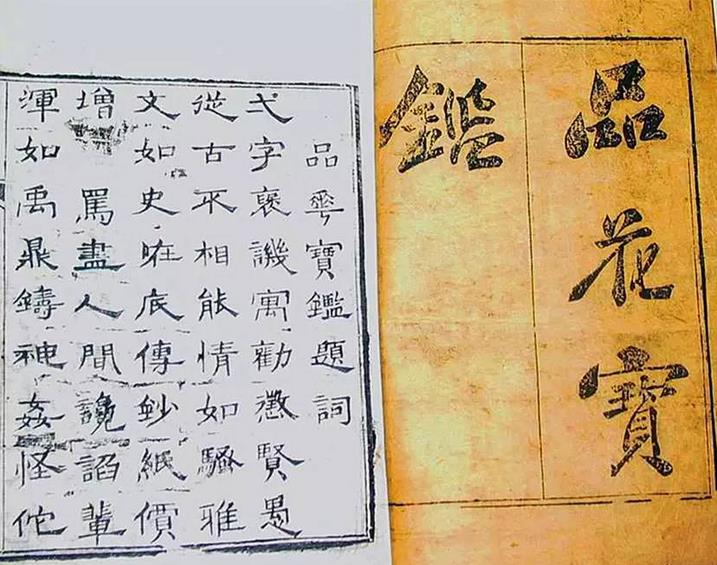 品花寶
鑑
品華寶鑑題詞
弌字褒譏寓勸懲賢愚
從古不相能情如騷雅
文如史怪底傳鈔紙價
增　罵盡人間讒諂輩
渾如禹鼎鑄神姦怪佗